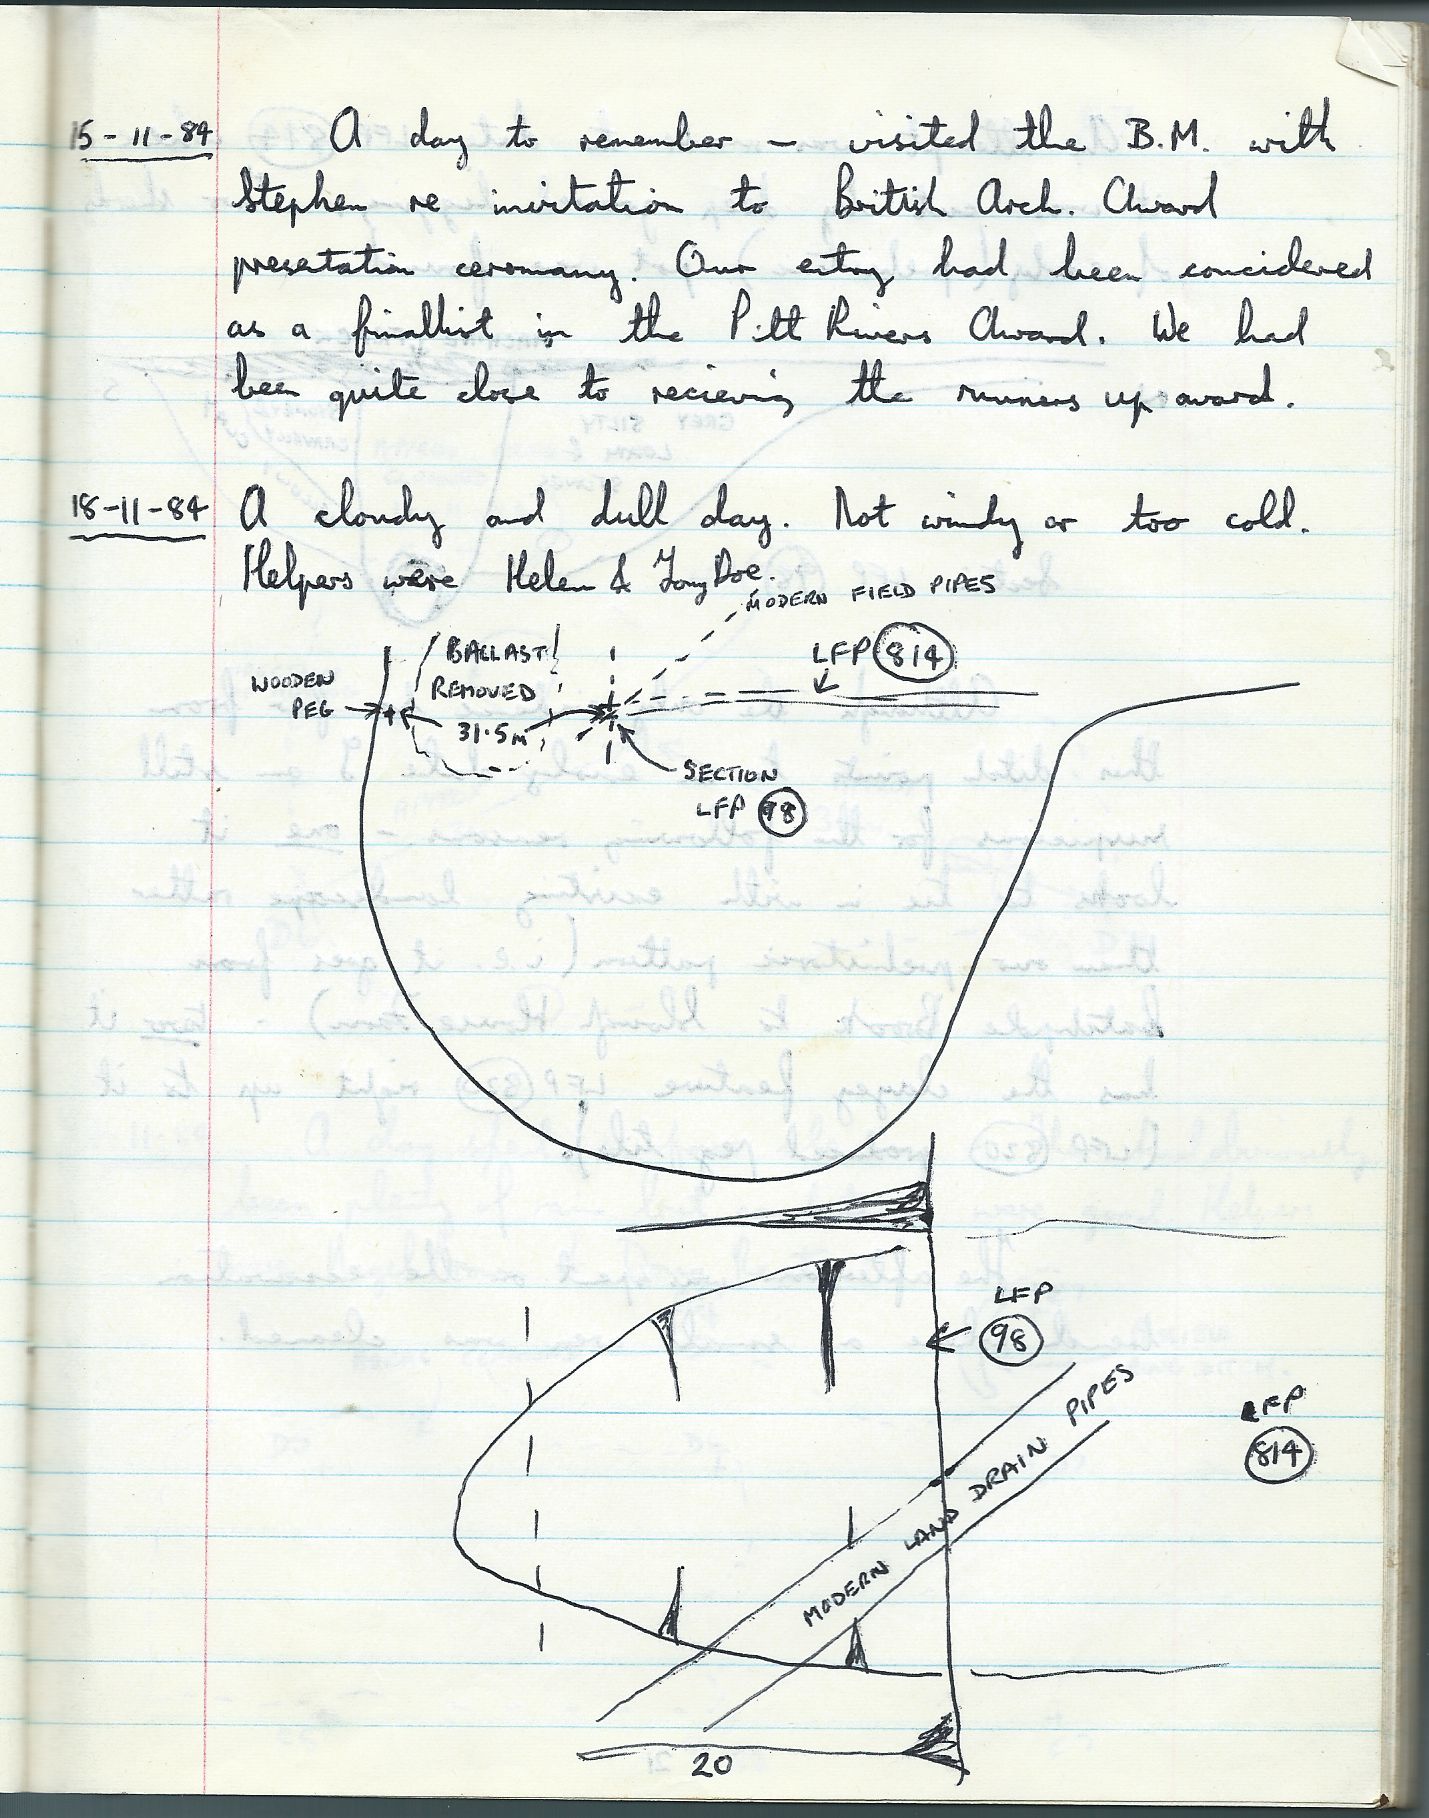 15-11-84 A day to remember – visited the B.M. with
Stephen re invitation to British Arch. Award
presetation ceromany. Our entry had been concidered
as a finallist in the Pitt Rivers Award. We had
been quite close to recieving the runners up award.
18-11-84 A cloudy and dull day. Not windy or too cold.
Helpers were Helen & Tony Doe.
MODERN FIELD PIPES
BALLAST
REMOVED
LFP 814
WOODEN
PEG
31.5m
SECTION
LFP 98
LFP
98
MODERN LAND DRAIN PIPES
LFP
814
20